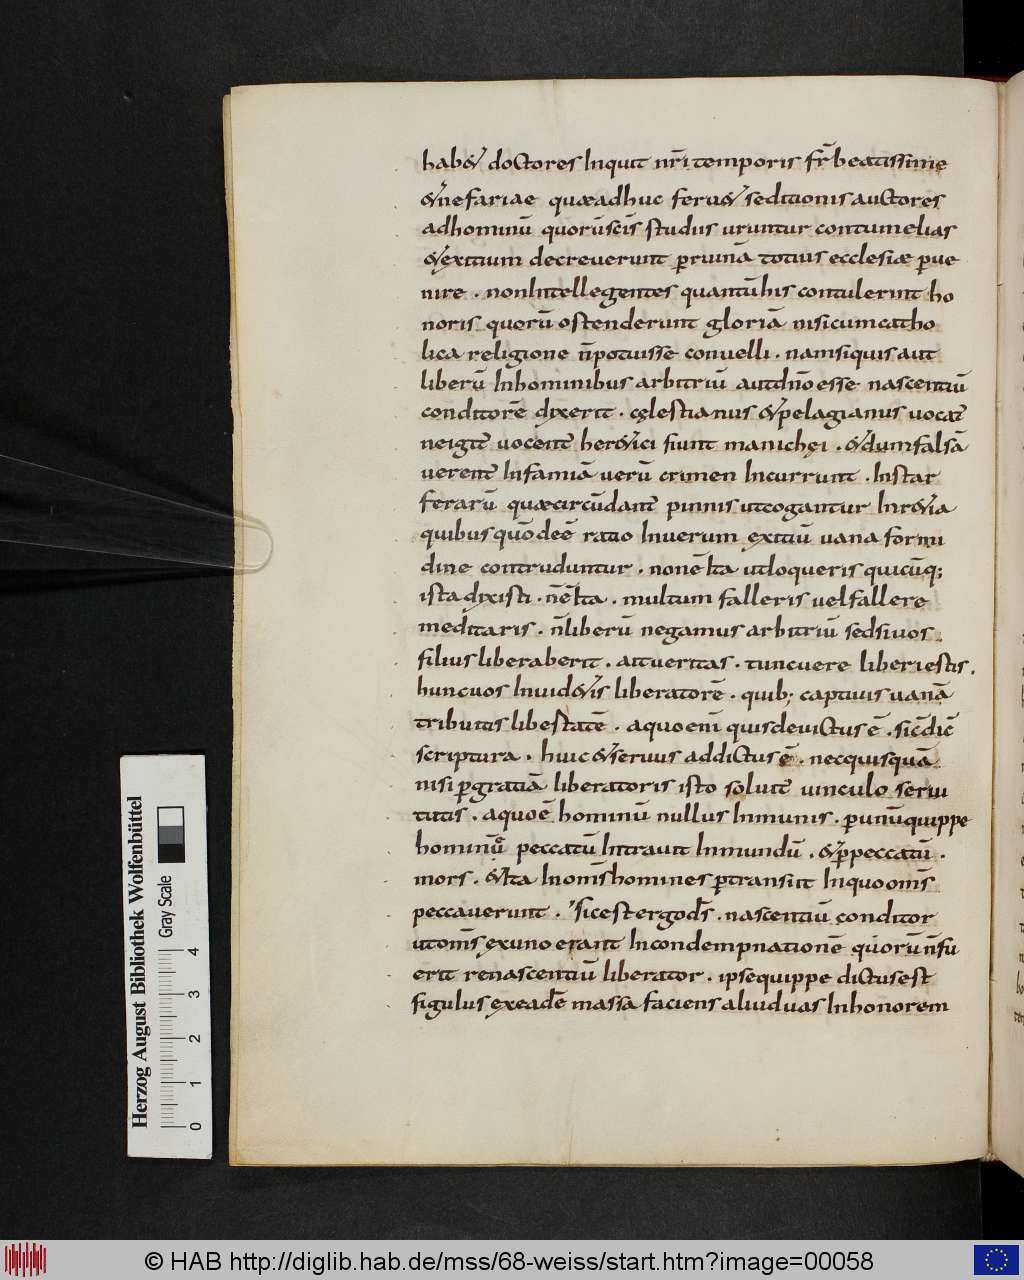 hab& doctores Inquit nr̄i temporis fr̄ beatissime
& nefariae quae adhuc feru& seditionis auctores
adhominū quorū sc̄is studiis uruntur contumelias
& exitium decreuerunt pruinā totius ecclesiæ pue
nire . non Intellegentes quantū his contulerint ho
noris quorū ostenderunt gloriā nisi cum catho
lica religione n̄ potuisse conuelli . nam siquis aut
liberū In hominibus arbitriū aut dm̄ esse nascentiū
conditorē dixerit . cęlestianus & pelagianus uocat̄
ne igit̄ uocent̄ her&ici fiunt manichęi . & dum falsā
uerent̄ Infamiā uerū crimen Incurrunt . Instar
ferarū quæ circūdant̄ pinnis ut cogantur Inr&ia
quibus quō deē ratio Inuerum exitiū uana formi
dine contruduntur . non ē Ita ut loqueris quicūq;
ista dixisti . n̄ ē Ita . multum falleris uel fallere
meditaris . n̄ liberū negamus arbitriū sed si uos
filius liberaberit . ait ueritas . tunc uere liberi estis .
hunc uos Inuid&is liberatorē . quib; captiuis uanā
tribuitis libestatē . a quo enī quis deuictus ē . sic̄ dic̄
scriptura . huic & seruus addictus ē . nec quisquā
nisi p gratiā liberatoris isto soluit̄ uinculo serui
tutis . a quo ē hominū nullus Inmunis . p unū quippe
hominū peccatū Intrauit In mundū . & p peccatū .
mors . & Ita In om̄s homines ptransiit In quo om̄s
peccauerunt . Sic est ergo ds̄ . nascentiū conditor
ut om̄s ex uno erant In condempnationē quorū n̄ fu
erit renascentiū liberator . ipse quippe dictus est
figulus ex eadē massa faciens aliud uas In honorem
Herzog August Bibliothek Wolfenbüttel
Gray Scale
0 1 2 3 4
© HAB http://diglib.hab.de/mss/68-weiss/start.htm?image=00058